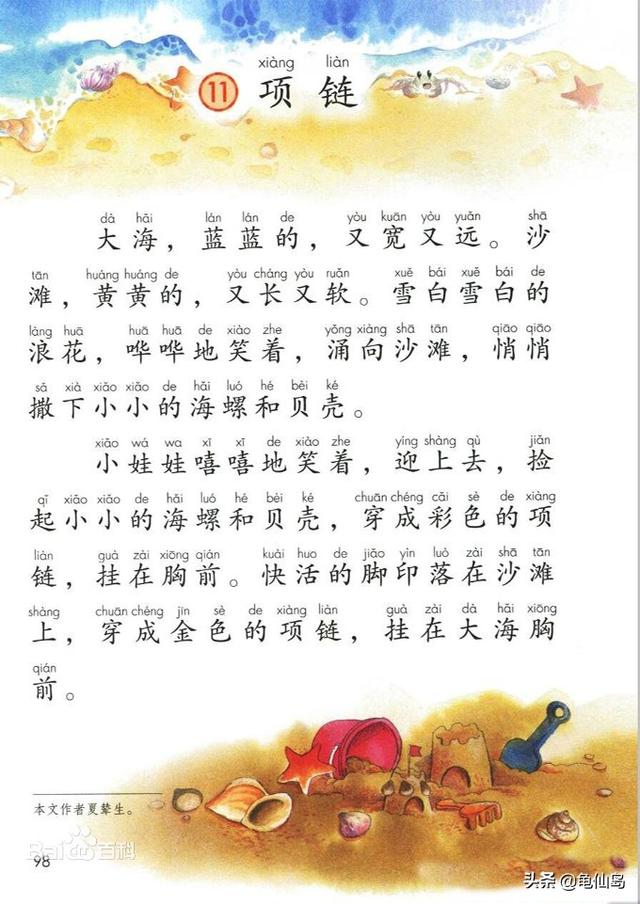 xiàng liàn
11 项链
dà hǎi lán lán de yòu kuān yòu yuǎn shā
大海，蓝蓝的，又宽又远。沙
tān huáng huáng de yòu cháng yòu ruǎn xuě bái xuě bái de
滩，黄黄的，又长又软。雪白雪白的
làng huā huā huā de xiào zhe yǒng xiàng shā tān qiāo qiāo
浪花，哗哗地笑着，涌向沙滩，悄悄
sǎ xià xiǎo xiǎo de hǎi luó hé bèi ké
撒下小小的海螺和贝壳。
xiǎo wá wa xī xī de xiào zhe yíng shàng qù jiǎn
小娃娃嘻嘻地笑着，迎上去，捡
qǐ xiǎo xiǎo de hǎi luó hé bèi ké chuān chéng cǎi sè de xiàng
起小小的海螺和贝壳，穿成彩色的项
liàn guà zài xiōng qián kuài huo de jiǎo yìn luò zài shā tān
链，挂在胸前。快活的脚印落在沙滩
shàng chuān chéng jīn sè de xiàng liàn guà zài dà hǎi xiōng
上，穿成金色的项链，挂在大海胸
qián
前。
本文作者夏辇生。
Baidu百科
98
头条 @龟仙岛